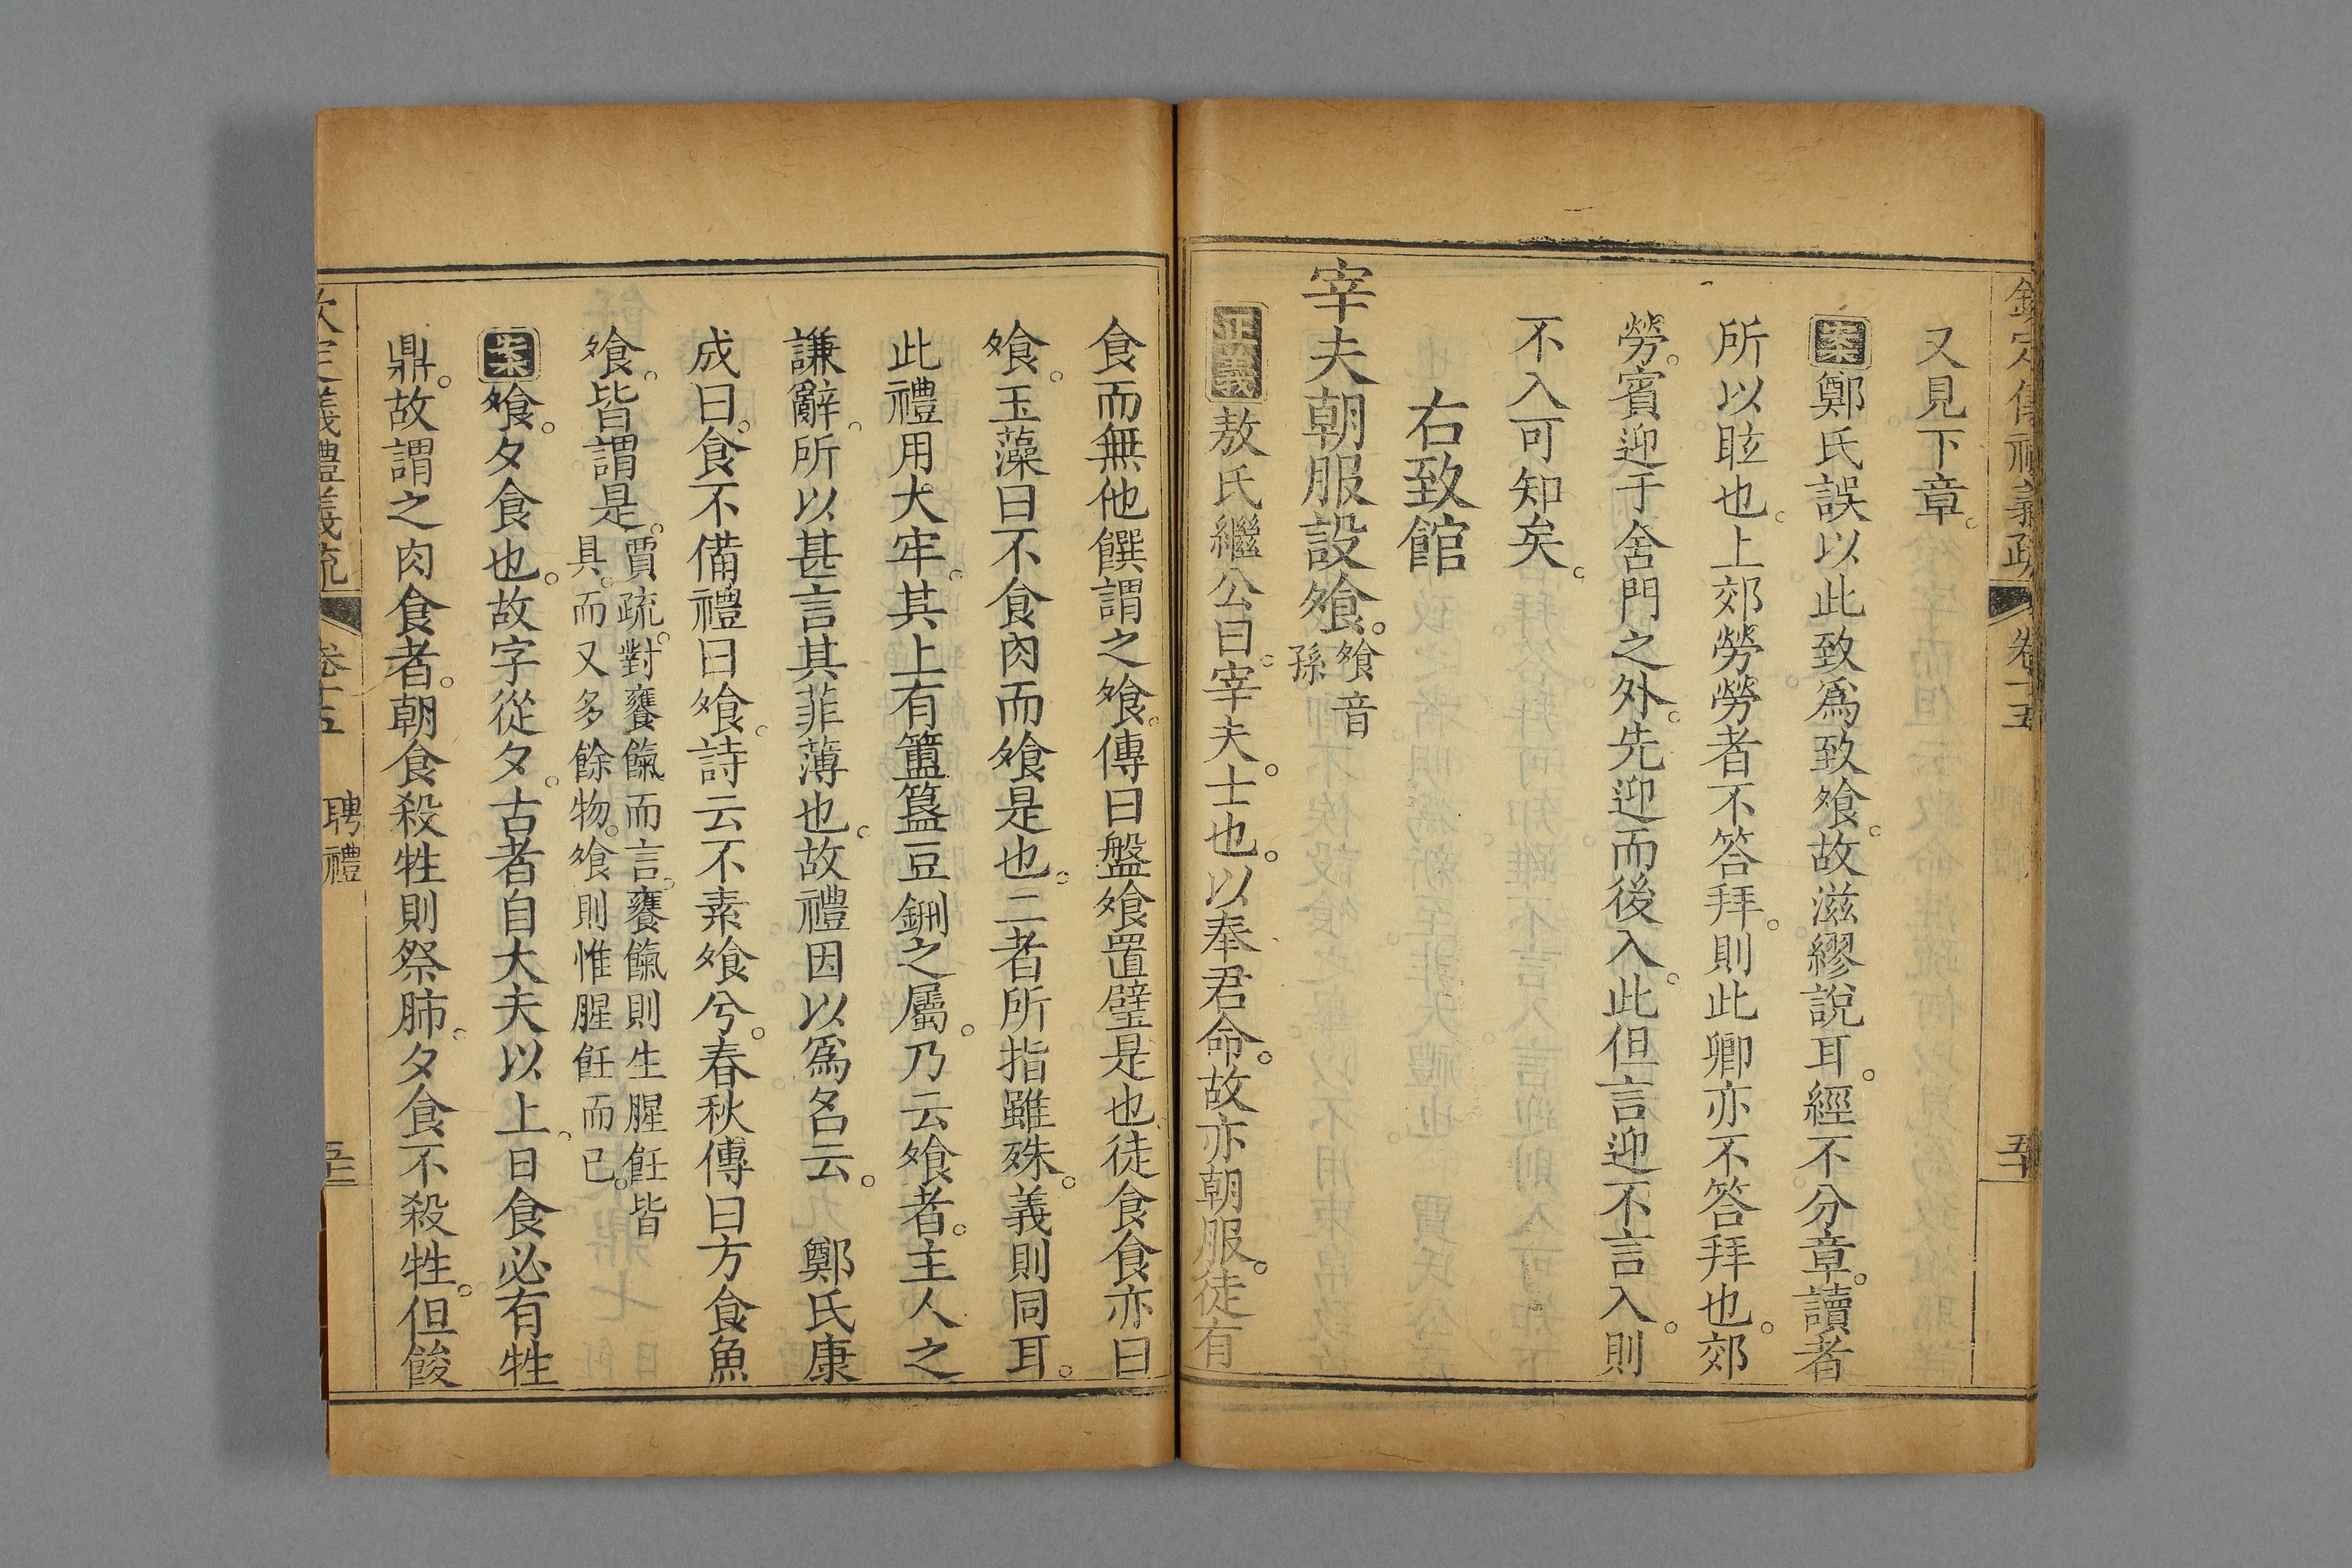 欽定儀禮義疏 卷十五 五十
又見下章。
案鄭氏誤以此致爲致飧。故滋繆說耳。經不分章。讀者
所以眩也。上郊勞勞者不答拜。則此卿亦不答拜也。郊
勞。賓迎于舍門之外。先迎而後入。此但言迎不言入。則
不入可知矣。
右致館
宰夫朝服設飧。飧音
孫
正義敖氏繼公曰。宰夫。士也。以奉君命。故亦朝服。徒有
食而無他饌謂之飧。傳曰盤飧置璧是也徒食食亦曰
飧。玉藻曰不食肉而飧是也。二者所指雖殊。義則同耳。
此禮用大牢。其上有簠簋豆鉶之屬。乃云飧者。主人之
謙辭。所以甚言其菲薄也。故禮因以爲名云。 鄭氏康
成曰。食不備禮曰飧。詩云不素飧兮。春秋傳曰方食魚
飧。皆謂是。賈疏。對饔餼而言。饔餼則生腥飪皆
具。而又多餘物。飧則惟腥飪而已。
案飧。夕食也。故字從夕。古者自大夫以上。日食必有牲
鼎。故謂之肉食者。朝食殺牲則祭肺。夕食不殺牲。但餕
欽定儀禮義疏 卷十五 聘禮